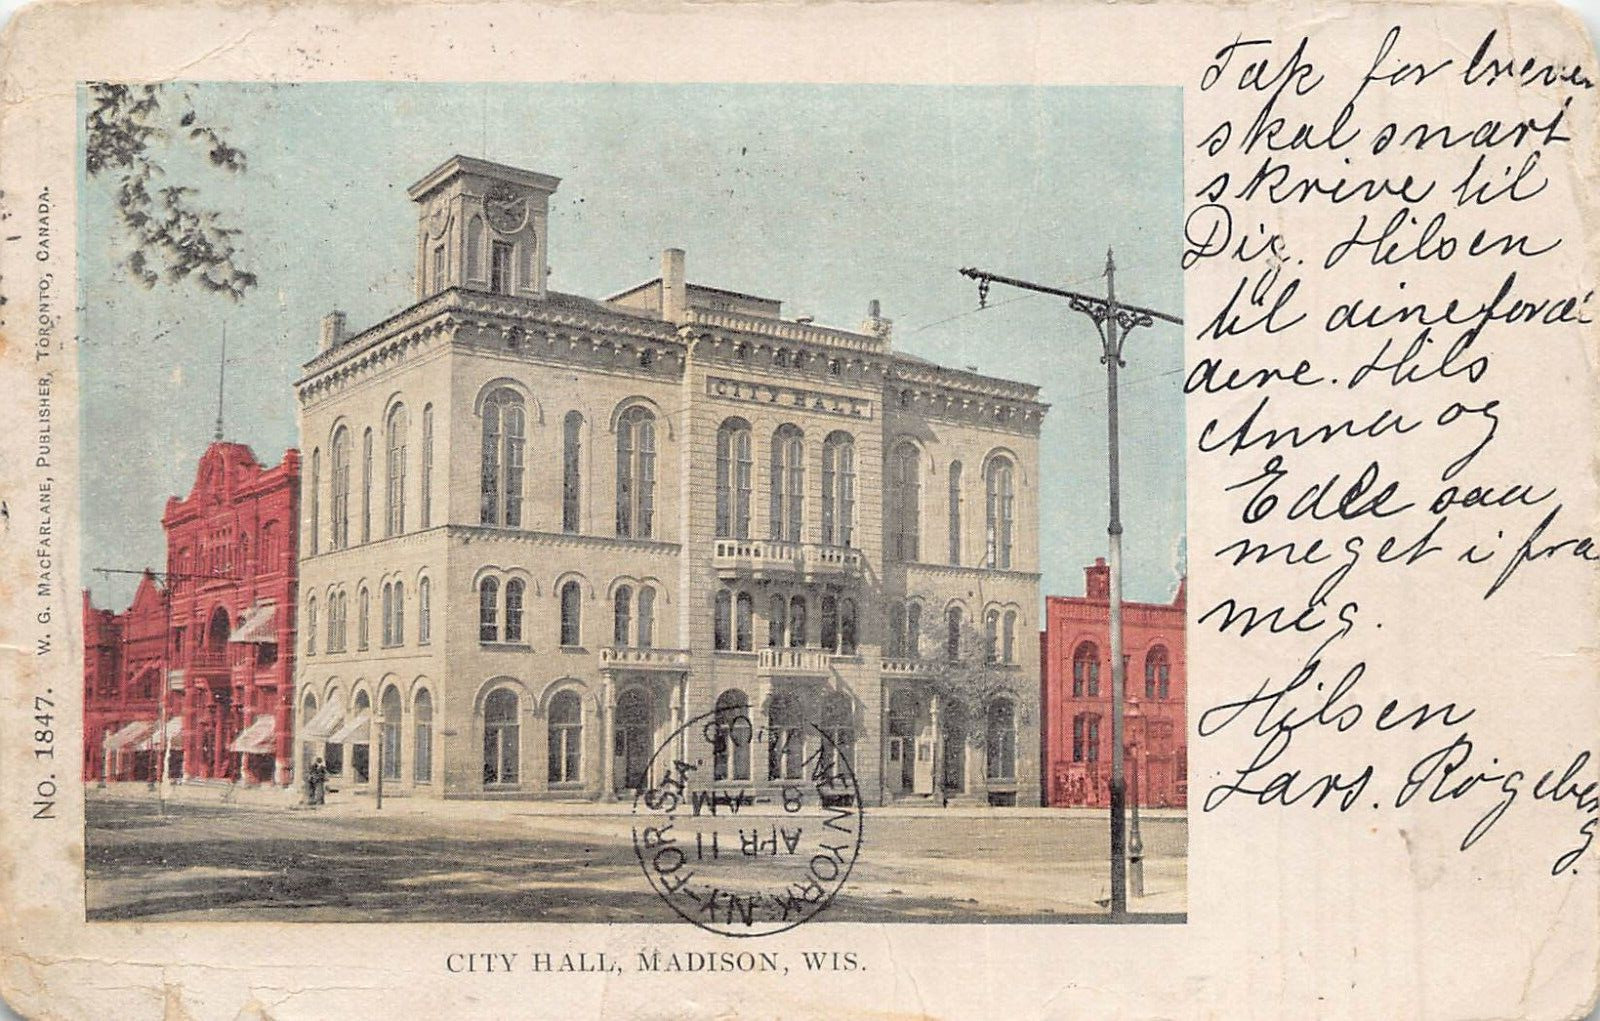 No. 1847. W. G. MacFarlane, Publisher, Toronto, Canada.
CITY HALL
NEW YORK, N.Y.-FOR.STA.
APR 11
8-AM
'05
CITY HALL, MADISON, WIS.
Tak for breve
skal snart
skrive til
Dig. Hilsen
til dine foræl-
dere. Hils
Anna og
saa
meget i fra
mig.
Hilsen
Lars. Røgeberg